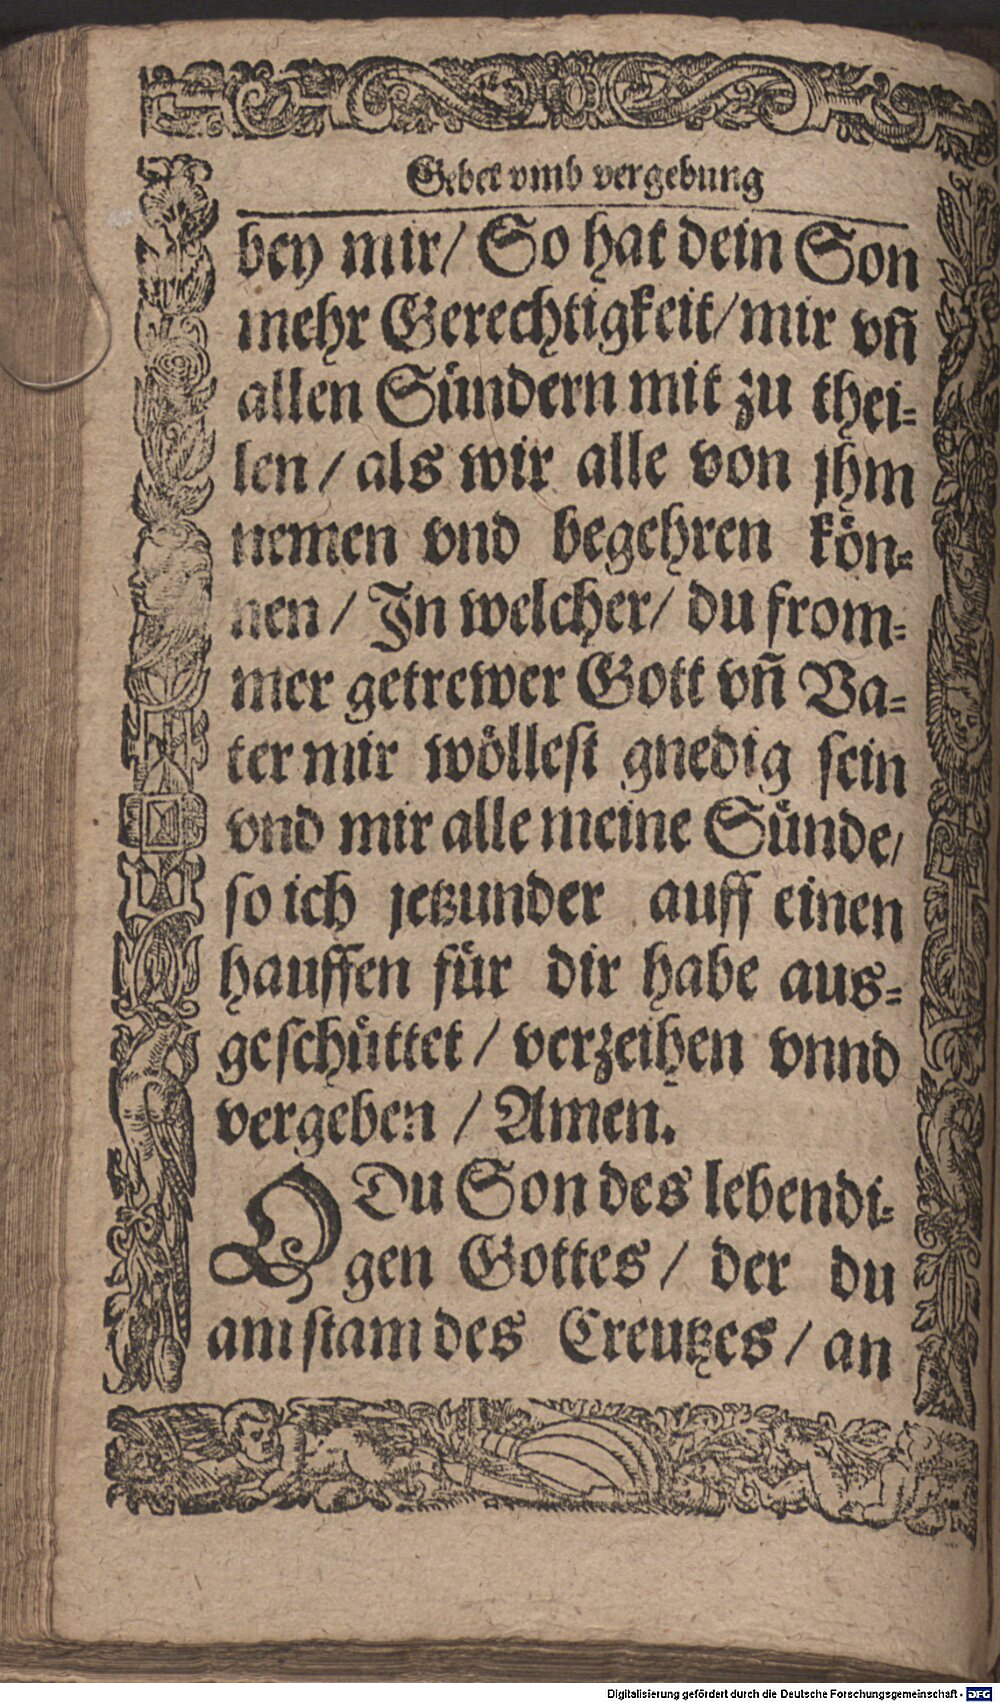 Gebet vmb vergebung
bey mir/ So hat dein Son
mehr Gerechtigkeit/mir vñ
allen Sündern mit zu thei-
len / als wir alle von jhm
nemen vnd begehren kön-
nen / In welcher/ du from-
mer getrewer Gott vñ Va-
ter mir wöllest gnedig sein
vnd mir alle meine Sünde/
so ich jetzunder auff einen
hauffen für dir habe aus-
geschüttet / verzeihen vnnd
vergeben / Amen.
O Du Son des lebendi-
gen Gottes / der du
am stam des Creutzes / an
Digitalisierung gefördert durch die Deutsche Forschungsgemeinschaft - DFG